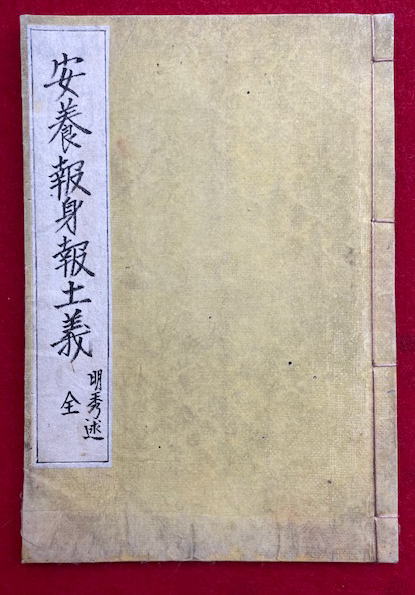 安養報身報土義
明秀述
全